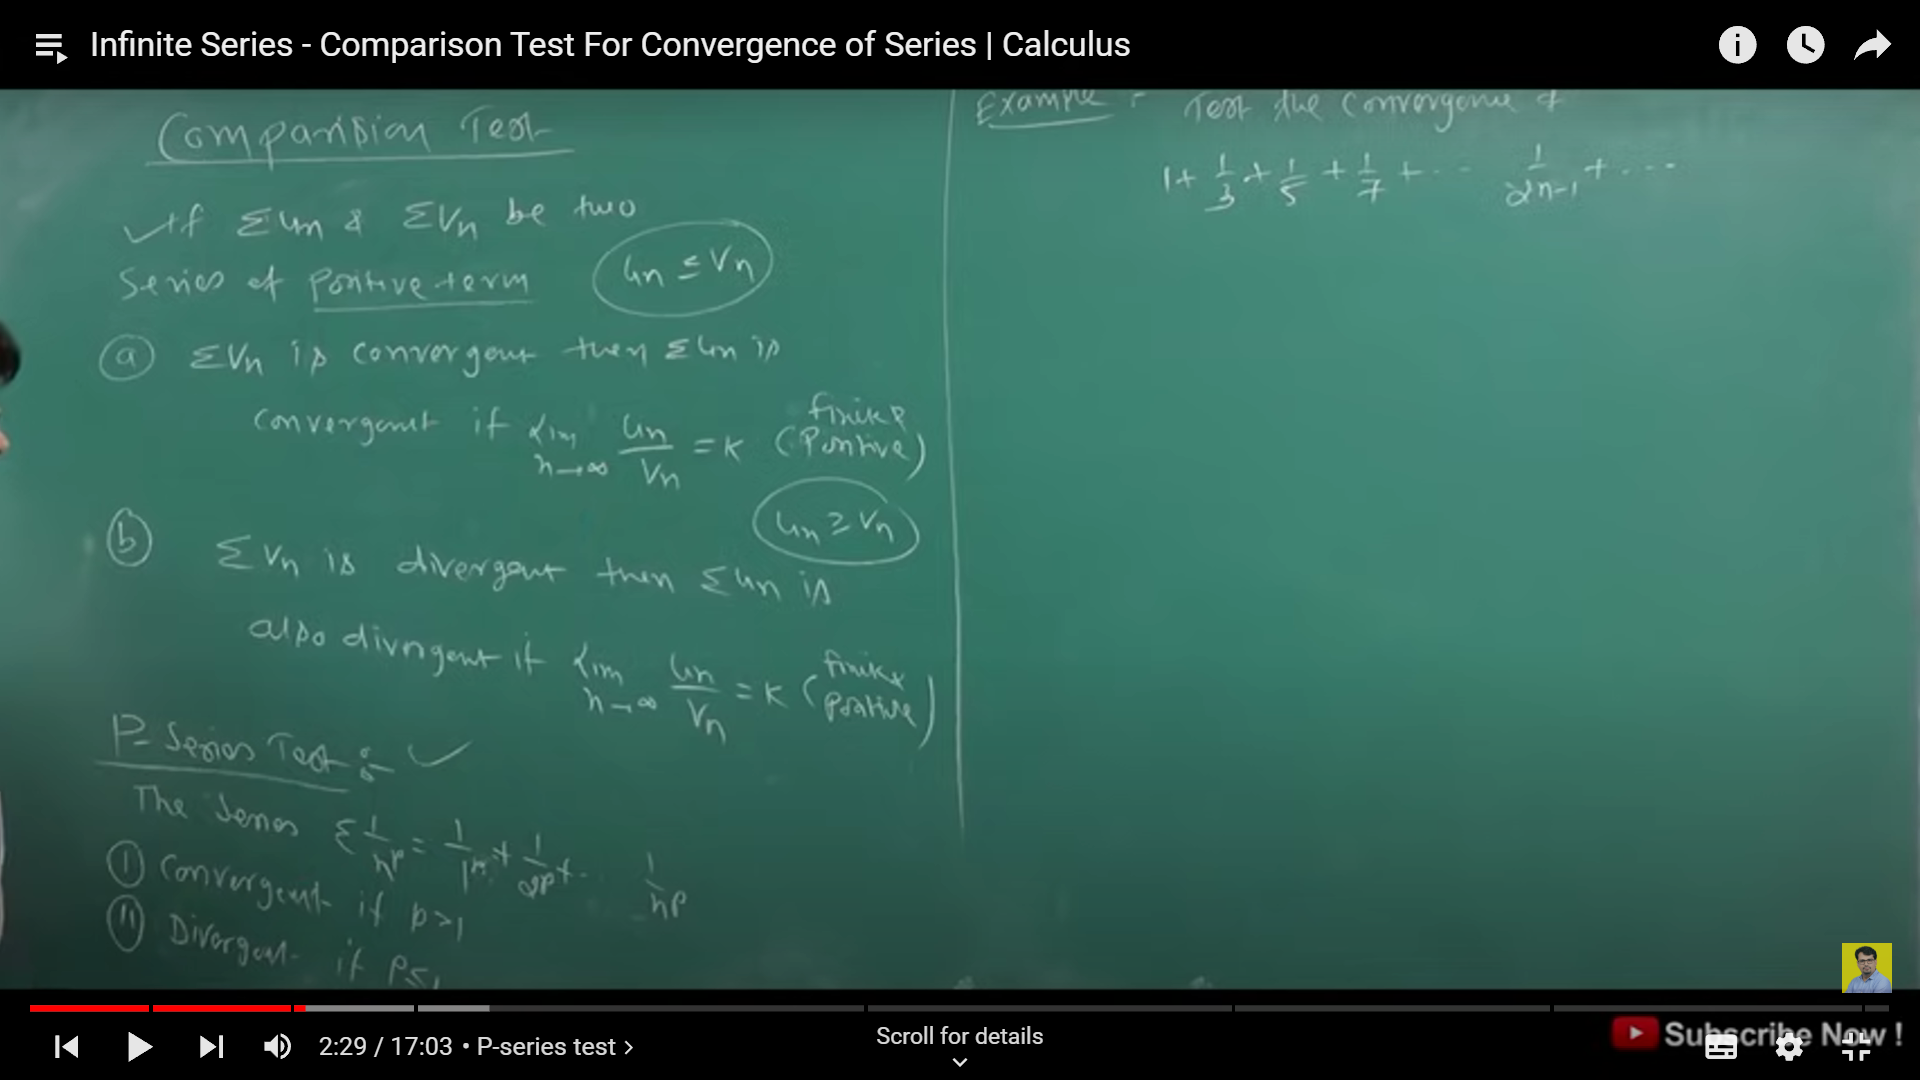 Infinite Series - Comparison Test For Convergence of Series | Calculus
Comparision Test
If Σun & Σvn be two
Series of positive term un ≤ vn
(a) Σvn is convergent then Σun is
convergent if Lim n→∞ un/vn = K (finite & Positive)
un ≥ vn
(b) Σvn is divergent then Σun is
also divergent if Lim n→∞ un/vn = K (finite & positive)
P-Series Test :-
The Series Σ 1/n^p = 1/1^p + 1/2^p + ... 1/n^p
(I) Convergent if p>1
(II) Divergent if P≤1
Example :- Test the convergence of
1 + 1/3 + 1/5 + 1/7 + ... 1/2n-1 + ...
2:29 / 17:03 • P-series test >
Scroll for details
Subscribe Now !